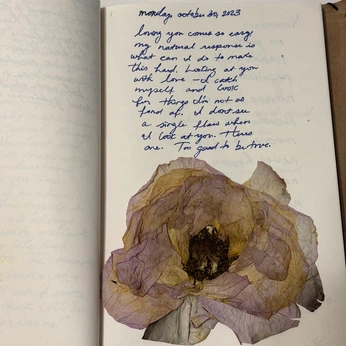 monday, october 30, 2023
loving you comes so easy
my natural response is
what can I do to make
this hard. Looking at you
with love - I catch
myself and look
for things I'm not as
fond of. I dont see
a single flaw when
I look at you. Theres
one. Too good to be true.